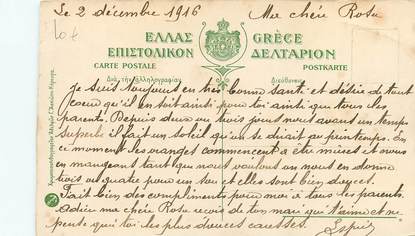 Le 2 décembre 1916
Ma chére Rosa
ΕΛΛΑΣ GRÈCE
ΕΠΙΣΤΟΛΙΚΟΝ ΔΕΛΤΑΡΙΟΝ
CARTE POSTALE POSTKARTE
Διὰ τὴν ἀλληλογραφίαν Διεύθυνσις
je suis toujours en très bonne santé et désire de tout
coeur qu'il en soit ainsi pour toi ainsi que tous les
parents. Depuis deux ou trois jours nous avons un temps
superbe il fait un soleil qu'on se dirait au printemps. En
ce moment les oranges commencent a être mures et nous
en mangeons tant que nous voulons on nous en donne
trois ou quatre pour un sou et elles sont bien
Fait bien des compliments pour moi à tous tes parents.
adieu ma chère Rosa reçois de ton mari qui t'aime et ne
pense qu'à toi les plus douces caresses.